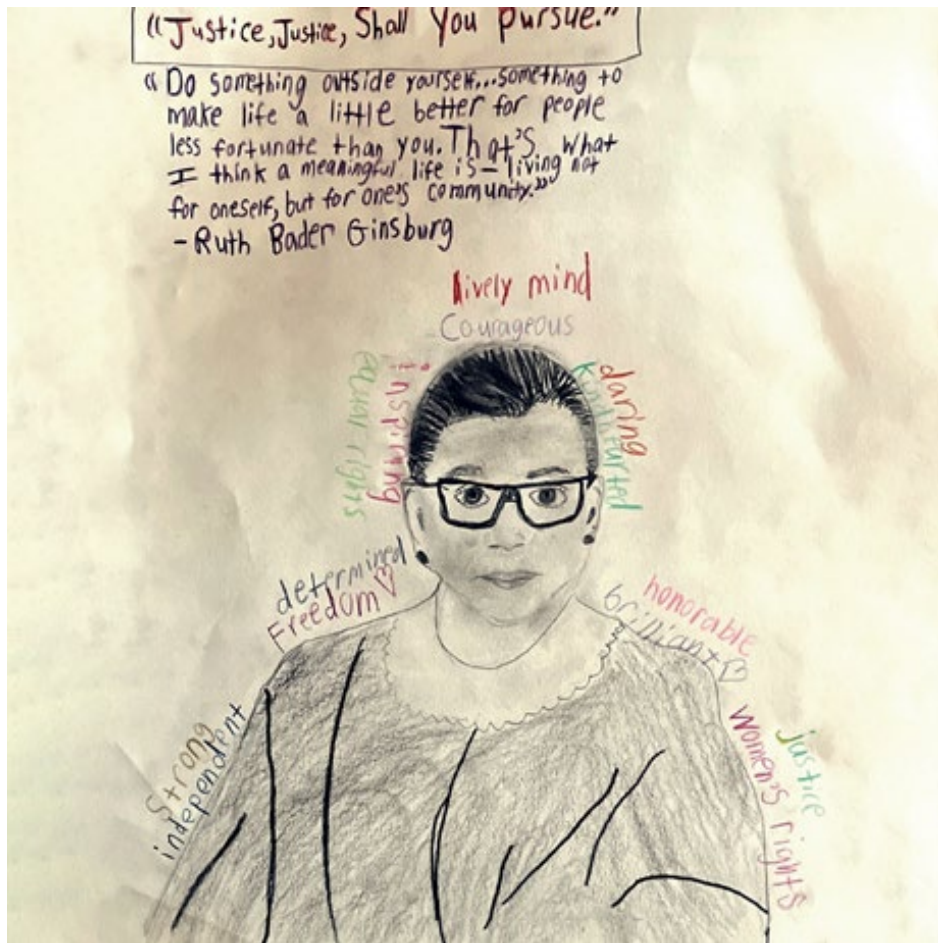 "Justice, Justice, Shall You Pursue."
"Do something outside yourself...something to
make life a little better for people
less fortunate than you. That's what
I think a meaningful life is - living not
for oneself, but for one's community."
- Ruth Bader Ginsburg
lively mind
Courageous
equal rights
inspiring
daring
Kindhearted
determined
Freedom ♡
honorable
brilliant ♡
Strong
independent
women's rights
justice